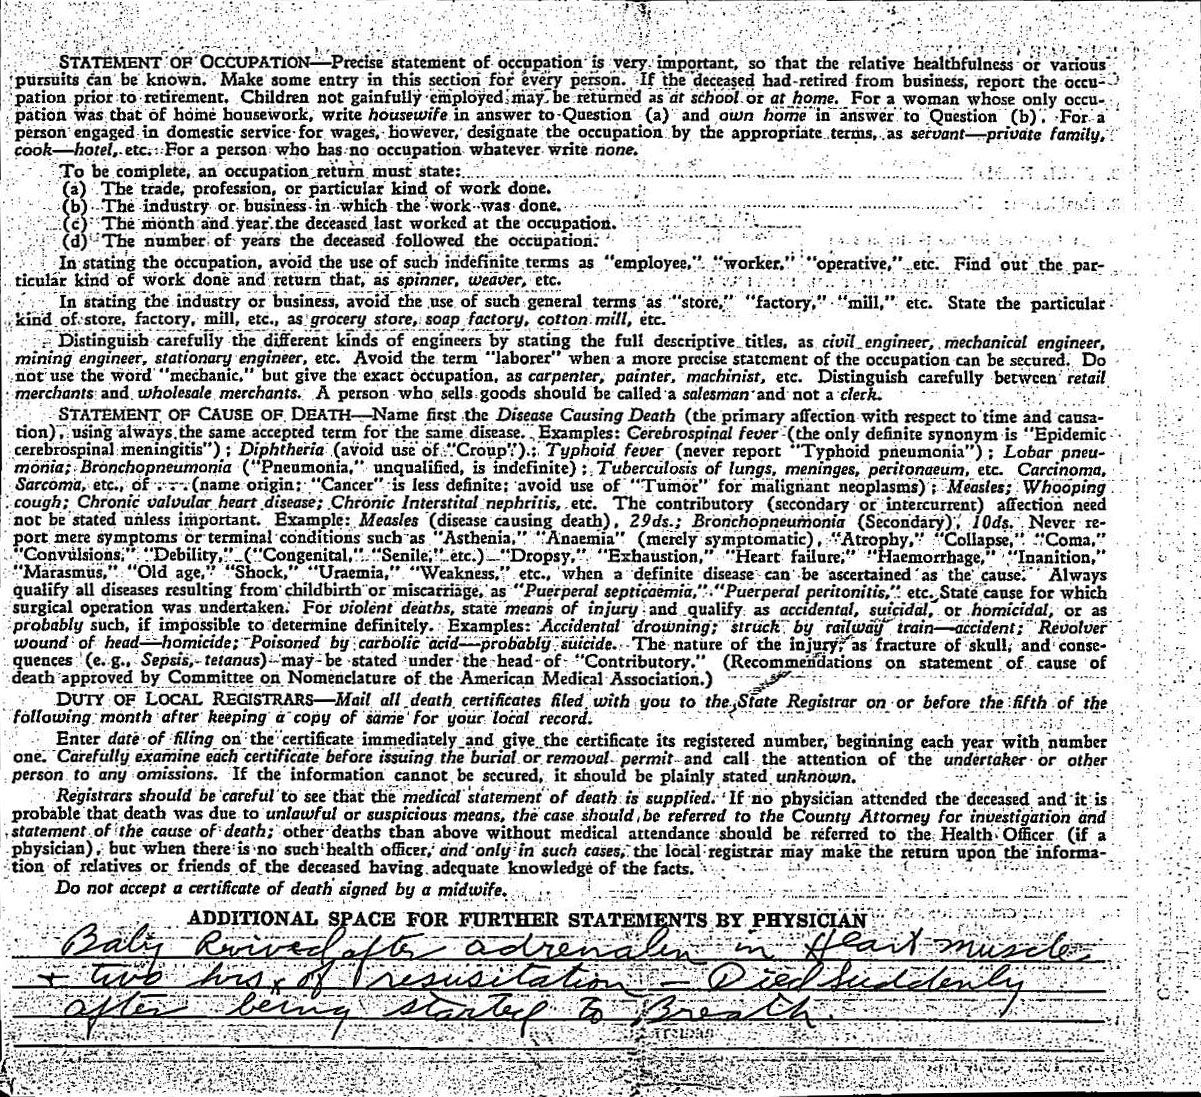 STATEMENT OF OCCUPATION—Precise statement of occupation is very important, so that the relative healthfulness of various
pursuits can be known. Make some entry in this section for every person. If the deceased had retired from business, report the occu-
pation prior to retirement. Children not gainfully employed may be returned as at school or at home. For a woman whose only occu-
pation was that of home housework, write housewife in answer to Question (a) and own home in answer to Question (b). For a
person engaged in domestic service for wages, however, designate the occupation by the appropriate terms, as servant—private family,
cook—hotel, etc. For a person who has no occupation whatever write none.
To be complete, an occupation return must state:
(a) The trade, profession, or particular kind of work done.
(b) The industry or business in which the work was done.
(c) The month and year the deceased last worked at the occupation.
(d) The number of years the deceased followed the occupation.
In stating the occupation, avoid the use of such indefinite terms as "employee," "worker," "operative," etc. Find out the par-
ticular kind of work done and return that, as spinner, weaver, etc.
In stating the industry or business, avoid the use of such general terms as "store," "factory," "mill," etc. State the particular
kind of store, factory, mill, etc., as grocery store, soap factory, cotton mill, etc.
Distinguish carefully the different kinds of engineers by stating the full descriptive titles, as civil engineer, mechanical engineer,
mining engineer, stationary engineer, etc. Avoid the term "laborer" when a more precise statement of the occupation can be secured. Do
not use the word "mechanic," but give the exact occupation, as carpenter, painter, machinist, etc. Distinguish carefully between retail
merchants and wholesale merchants. A person who sells goods should be called a salesman and not a clerk.
STATEMENT OF CAUSE OF DEATH—Name first the Disease Causing Death (the primary affection with respect to time and causa-
tion), using always the same accepted term for the same disease. Examples: Cerebrospinal fever (the only definite synonym is "Epidemic
cerebrospinal meningitis"); Diphtheria (avoid use of "Croup"); Typhoid fever (never report "Typhoid pneumonia"); Lobar pneu-
monia; Bronchopneumonia ("Pneumonia," unqualified, is indefinite); Tuberculosis of lungs, meninges, peritonaeum, etc. Carcinoma,
Sarcoma, etc., of ... (name origin; "Cancer" is less definite; avoid use of "Tumor" for malignant neoplasms); Measles; Whooping
cough; Chronic valvular heart disease; Chronic Interstital nephritis, etc. The contributory (secondary or intercurrent) affection need
not be stated unless important. Example: Measles (disease causing death), 29ds.; Bronchopneumonia (Secondary), 10ds. Never re-
port mere symptoms or terminal conditions such as "Asthenia," "Anaemia" (merely symptomatic), "Atrophy," "Collapse," "Coma,"
"Convulsions," "Debility," ("Congenital," "Senile," etc.) "Dropsy," "Exhaustion," "Heart failure," "Haemorrhage," "Inanition,"
"Marasmus," "Old age," "Shock," "Uraemia," "Weakness," etc., when a definite disease can be ascertained as the cause. Always
qualify all diseases resulting from childbirth or miscarriage, as "Puerperal septicaemia," "Puerperal peritonitis," etc. State cause for which
surgical operation was undertaken. For violent deaths, state means of injury and qualify as accidental, suicidal, or homicidal, or as
probably such, if impossible to determine definitely. Examples: Accidental drowning; struck by railway train—accident; Revolver
wound of head—homicide; Poisoned by carbolic acid—probably suicide. The nature of the injury, as fracture of skull, and conse-
quences (e. g., Sepsis, tetanus) may be stated under the head of "Contributory." (Recommendations on statement of cause of
death approved by Committee on Nomenclature of the American Medical Association.)
DUTY OF LOCAL REGISTRARS—Mail all death certificates filed with you to the State Registrar on or before the fifth of the
following month after keeping a copy of same for your local record.
Enter date of filing on the certificate immediately and give the certificate its registered number, beginning each year with number
one. Carefully examine each certificate before issuing the burial or removal permit and call the attention of the undertaker or other
person to any omissions. If the information cannot be secured, it should be plainly stated unknown.
Registrars should be careful to see that the medical statement of death is supplied. If no physician attended the deceased and it is
probable that death was due to unlawful or suspicious means, the case should be referred to the County Attorney for investigation and
statement of the cause of death; other deaths than above without medical attendance should be referred to the Health Officer (if a
physician), but when there is no such health officer, and only in such cases, the local registrar may make the return upon the informa-
tion of relatives or friends of the deceased having adequate knowledge of the facts.
Do not accept a certificate of death signed by a midwife.
ADDITIONAL SPACE FOR FURTHER STATEMENTS BY PHYSICIAN
Baby Revived after adrenalen in Heart muscle
+ two hrs of resusitation – Died Suddenly
after being started to Breath.